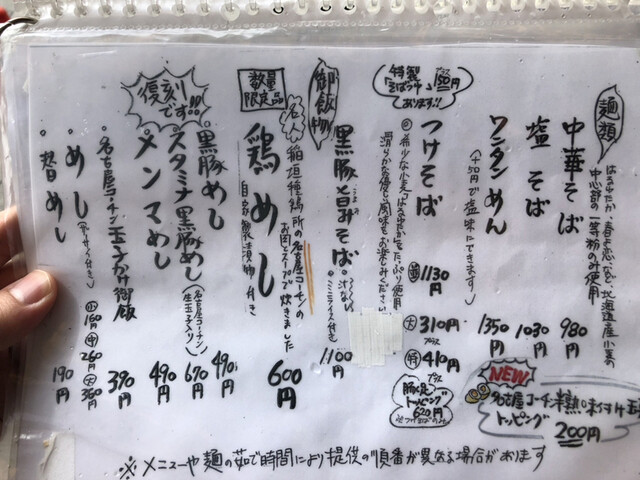 麺類
はるゆたか、春よ恋など、北海道産小麦の
中心部の一等粉のみ使用
中華そば 980円
塩そば 1030円
ワンタンめん 1350円
(+50円で塩味にできます)
特製
そばつゆ 150円
あります!!
つけそば
並 1130円
大 プラス 310円
特 プラス 410円
◎希少な小麦「はるゆたか」をたっぷり使用
滑らかな優しい風味をお楽しみください
豚見
トッピング
620円
NEW
名古屋コーチン半熟味付け玉
トッピング
200円
黒豚旨みそば 1100円
汁なし
ミニライス付き
御飯物
数量
限定品
鶏めし 600円
稲垣種鶏所の名古屋コーチンの
お肉とスープで炊きました
自家製漬物付き
復刻
です!!!
黒豚めし 490円
スタミナ黒豚めし 670円
(名古屋コーチン
生玉子入り)
メンマめし 490円
名古屋コーチン玉子かけ御飯 390円
めし
小 160円
中 260円
大 360円
替めし 190円
※メニューや麺の茹で時間により提供の順番が異なる場合があります